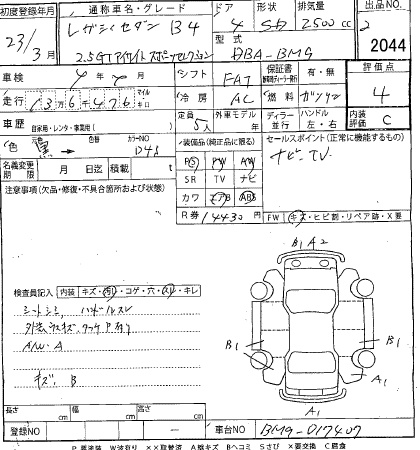 初度登録年月 通称車名・グレード ドア 形状 排気量 出品NO
23/3月 レガシィセダン B4 4 SD 2500cc 2
2.5GTアイサイト スポーツセレクション 型式 DBA-BM9 2044
車検 年 月 シフト FAT 保証書 有・無 評価点
走行 13万6千476 マイル キロ 冷房 AC 燃料 ガソリン 4
車歴 自家用・レンタ・事業用( ) 定員 5人 外車モデル 年 ディーラー 並行 ハンドル 左・右 内装評価 C
色 黒 → 色番 カラーNO D4S 装備品(純正品に限る) セールスポイント(正常に機能するもの)
名義変更期限 月 日迄 積載 t PS PW AW ナビTV
注意事項(欠品・修復・不具合箇所および状態) SR TV ナビ
カワ エアB ABS
R券 14430円 FW キズ・ヒビ割・リペア跡・X要
B1 A2
検査員記入 内装 キズ・切レ・コゲ・穴・スレ・キレ
シートシミ ハンドルスレ
A/W・A
キズ B
B1 B1
A1
A1
長さ cm 幅 cm 高さ cm
登録NO ー 車台NO BM9-017407
P要塗装 W波有り XX取替済 A線キズ Bヘコミ Sさび X要交換 C腐食